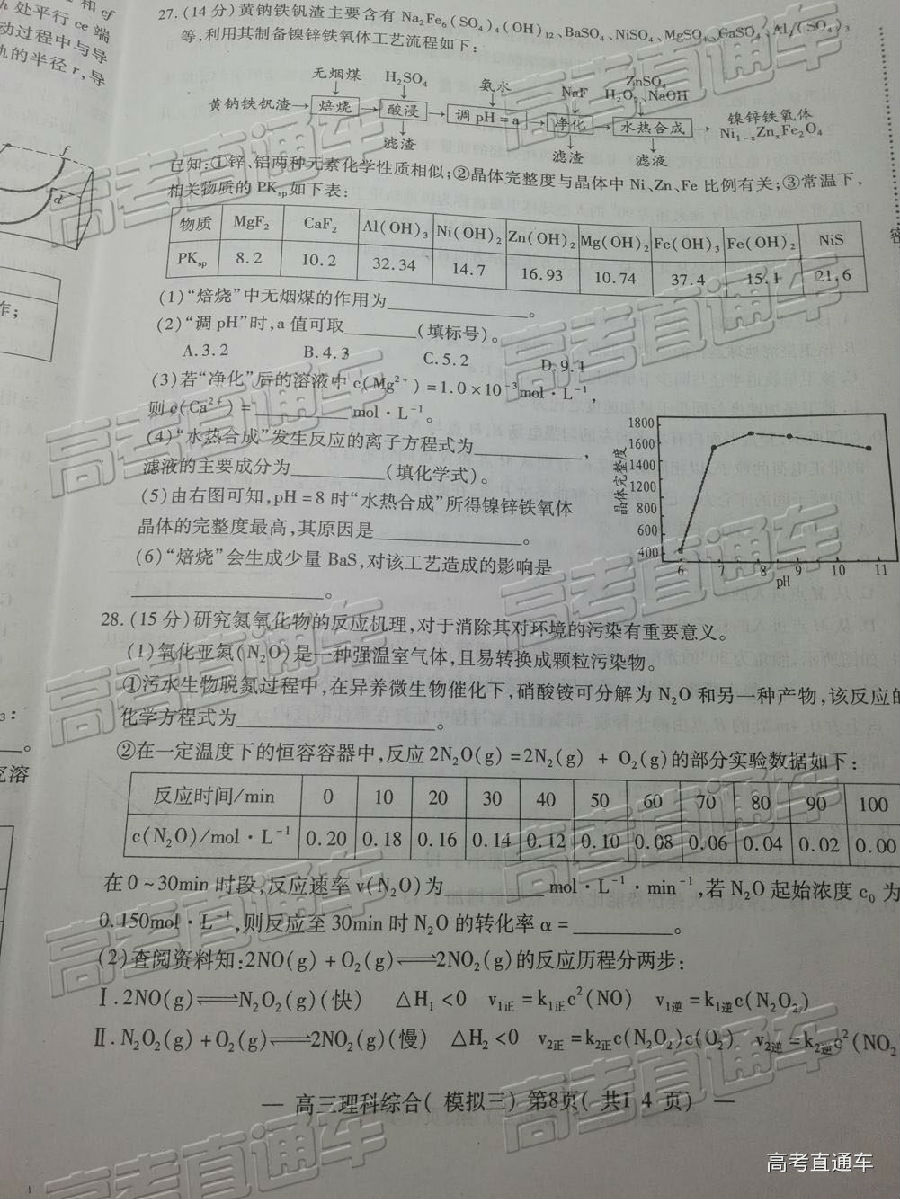 和 cf
处平行 ce 端
动过程中与导
轨的半径 r,导
f
d
作;
究溶
密
27.(14分)黄钠铁钒渣主要含有 Na₂Fe₆(SO₄)₄(OH)₁₂、BaSO₄、NiSO₄、MgSO₄、CaSO₄、Al₂(SO₄)₃
等,利用其制备镍锌铁氧体工艺流程如下:
无烟煤 H₂SO₄ 氨水 NaF ZnSO₄
H₂O₂、NaOH
黄钠铁钒渣 焙烧 酸浸 调 pH=a 净化 水热合成 镍锌铁氧体
Ni₁₋ₓZnₓFe₂O₄
滤渣 滤渣 滤液
已知:①锌、铝两种元素化学性质相似;②晶体完整度与晶体中 Ni、Zn、Fe 比例有关;③常温下,
相关物质的 PKsp如下表:
物质 MgF₂ CaF₂ Al(OH)₃ Ni(OH)₂ Zn(OH)₂ Mg(OH)₂ Fe(OH)₃ Fe(OH)₂ NiS
PKsp 8.2 10.2 32.34 14.7 16.93 10.74 37.4 15.1 21.6
(1)“焙烧”中无烟煤的作用为____________。
(2)“调 pH”时,a 值可取______(填标号)。
A.3.2 B.4.3 C.5.2 D.9.1
(3)若“净化”后的溶液中 c(Mg²⁺)=1.0×10⁻³mol·L⁻¹,
则 c(Ca²⁺)=________mol·L⁻¹。
(4)“水热合成”发生反应的离子方程式为________,
滤液的主要成分为________(填化学式)。
(5)由右图可知,pH=8 时“水热合成”所得镍锌铁氧体
晶体的完整度最高,其原因是____________。
(6)“焙烧”会生成少量 BaS,对该工艺造成的影响是
____________。
晶体完整度
1800
1600
1400
1200
1000
800
600
400
6 7 8 9 10 11
pH
28.(15分)研究氮氧化物的反应机理,对于消除其对环境的污染有重要意义。
(1)氧化亚氮(N₂O)是一种强温室气体,且易转换成颗粒污染物。
①污水生物脱氮过程中,在异养微生物催化下,硝酸铵可分解为 N₂O 和另一种产物,该反应的
化学方程式为____________。
②在一定温度下的恒容容器中,反应 2N₂O(g)=2N₂(g) + O₂(g)的部分实验数据如下:
反应时间/min 0 10 20 30 40 50 60 70 80 90 100
c(N₂O)/mol·L⁻¹ 0.20 0.18 0.16 0.14 0.12 0.10 0.08 0.06 0.04 0.02 0.00
在 0~30min 时段,反应速率 v(N₂O)为________mol·L⁻¹·min⁻¹,若 N₂O 起始浓度 c₀ 为
0.150mol·L⁻¹,则反应至 30min 时 N₂O 的转化率 α=________。
(2)查阅资料知:2NO(g)+O₂(g)⇌2NO₂(g)的反应历程分两步:
Ⅰ.2NO(g)⇌N₂O₂(g)(快) △H₁<0 v₁正=k₁正c²(NO) v₁逆=k₁逆c(N₂O₂)
Ⅱ.N₂O₂(g)+O₂(g)⇌2NO₂(g)(慢) △H₂<0 v₂正=k₂正c(N₂O₂)c(O₂) v₂逆=k₂逆c²(NO₂
— 高三理科综合( 模拟三) 第8页( 共1 4 页) —
高考直通车